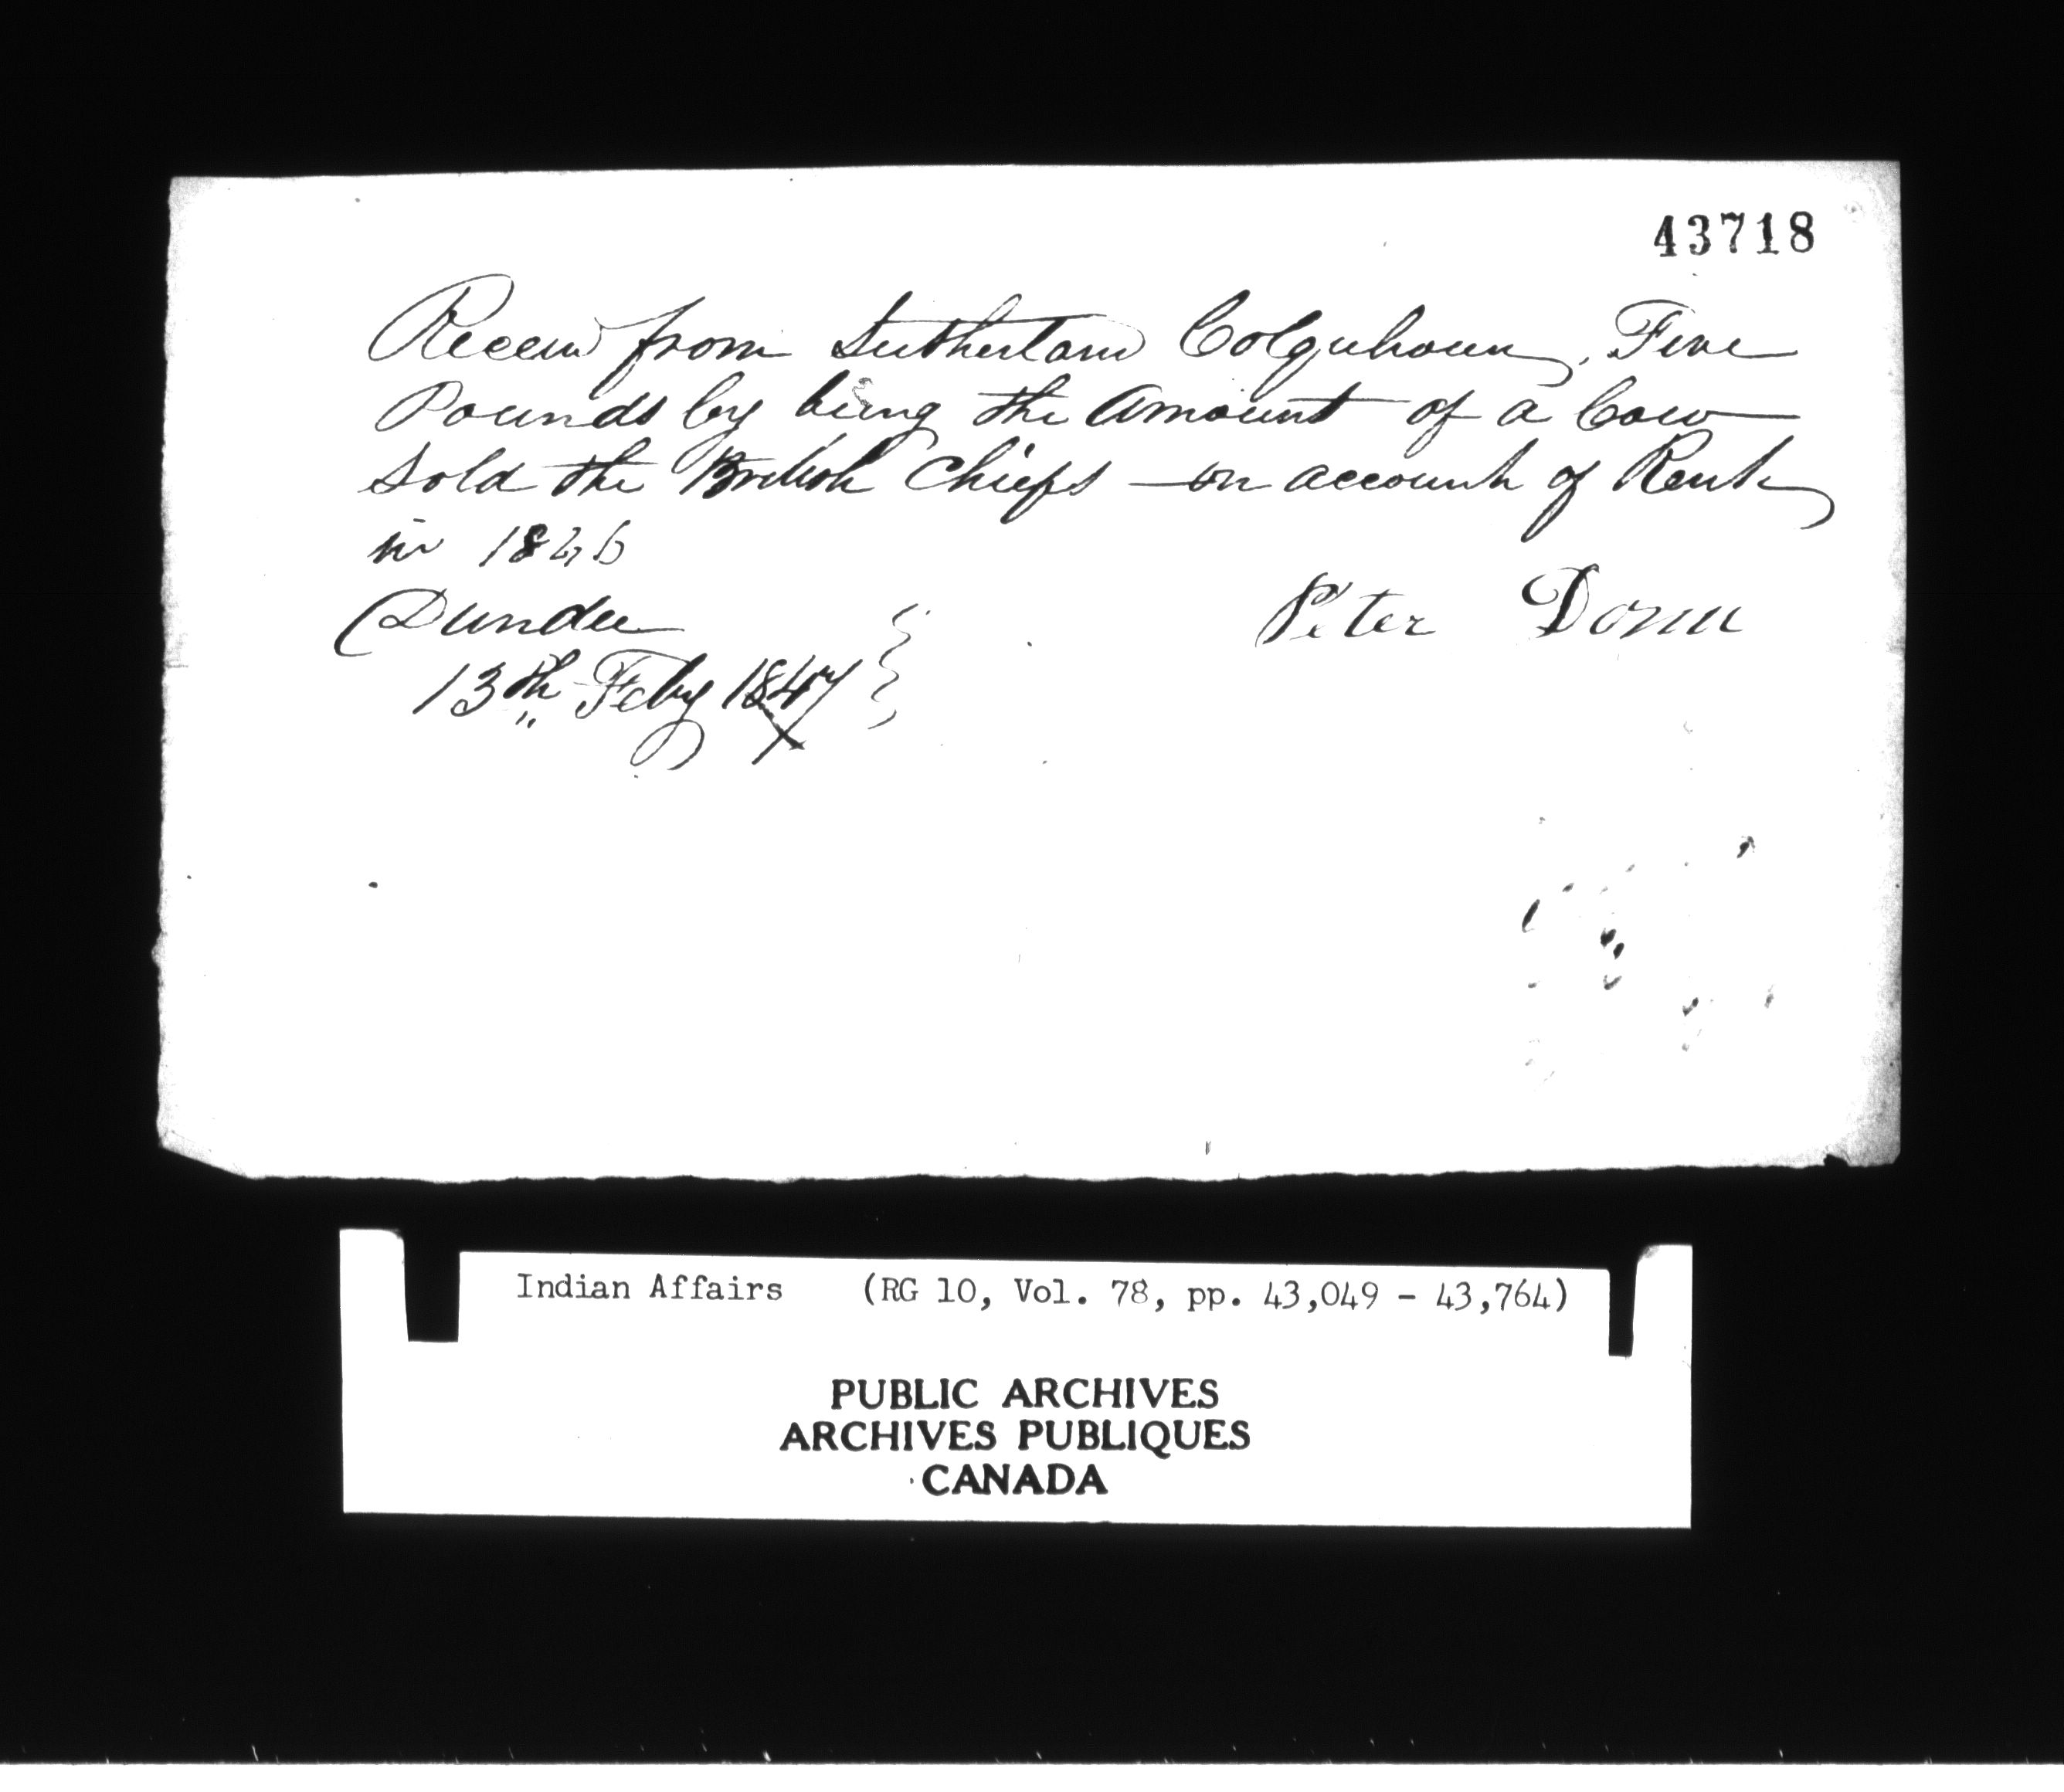 43718
Received from Sutherland Colquhoun, Five
Pounds by being the Amount of a Cow
Sold the British Chiefs on account of Rent
in 1846
Dundee
13th Feby 1847
Peter Donn
Indian Affairs (RG 10, Vol. 78, pp. 43,049 - 43,764)
PUBLIC ARCHIVES
ARCHIVES PUBLIQUES
CANADA